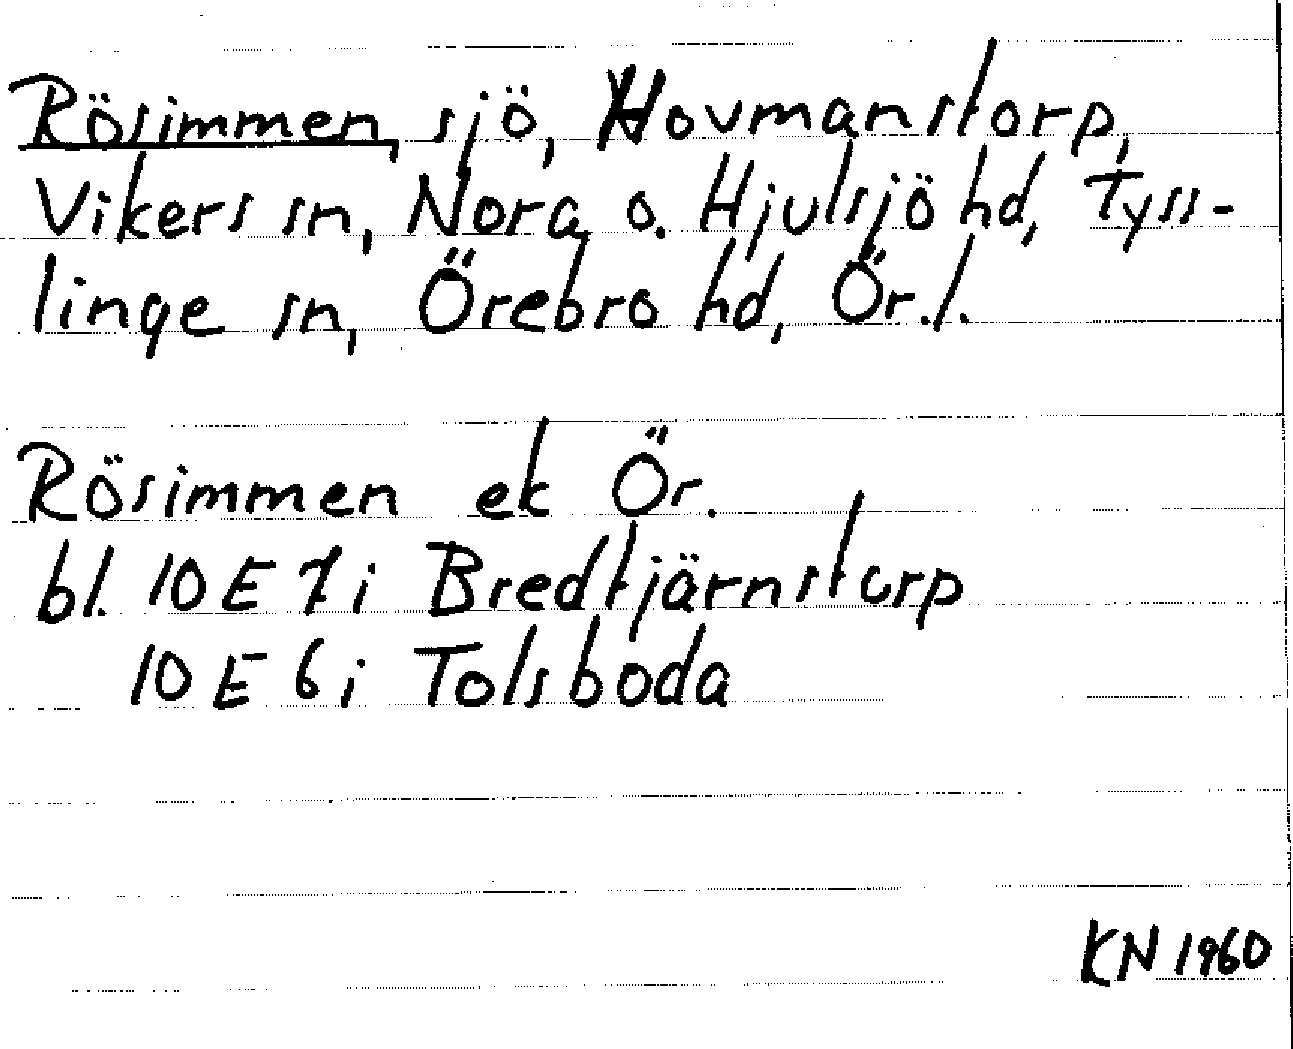 Rösimmen, sjö, Hovmanstorp,
Vikers sn, Nora o. Hjulsjö hd, Tyss-
linge sn, Örebro hd, Ör.l.
Rösimmen ek Ör.
bl. 10 E 7 i Bredtjärnstorp
10 E 6 i Tolsboda
KN 1960